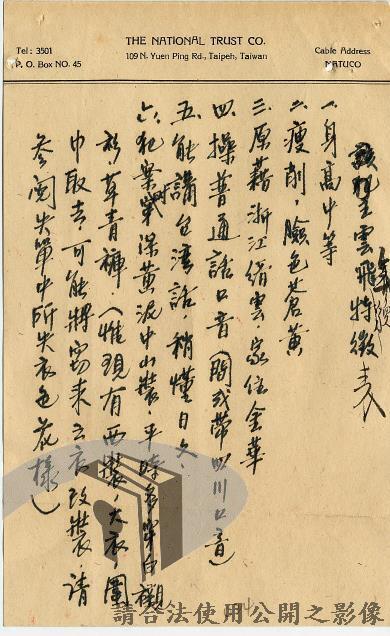 THE NATIONAL TRUST CO.
109 N. Yuen Ping Rd., Taipeh, Taiwan
Tel: 3501
P. O. Box NO. 45
Cable Address
NATUCO
王雲飛特徵表
一、身高中等
二、瘦削，臉色蒼黃
三、原籍浙江縉雲，家住金華
四、操普通話口音（間或帶四川口音）
五、能講台灣話，稍懂日文，
六、犯案時穿深黃泥中山裝，平時多穿白襯
衫，草青褲（惟現有西裝，大衣，圍
巾取去，可能將竊來之衣改裝，請
參閱失單中所失衣色花樣）
請合法使用公開之影像